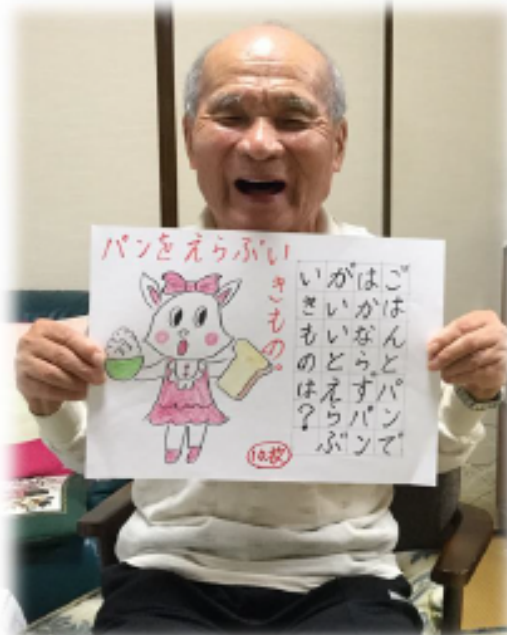 パンをえらぶい
きもの。
ごはんとパンで
はかならずパン
がいいとえらぶ
いきものは?